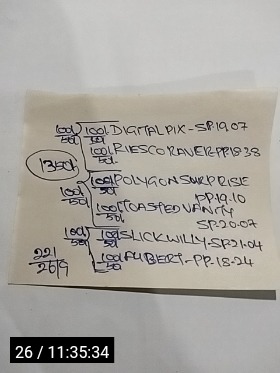 100/50 100/50 DIGITALPIX-SP.19.07
100/50 RIESCORAVER-PP.18.38
1350/-
100/50 100/50 POLYGONSURPRISE
PP.19.10
100/50 TOASTEDVANITY
SP.20-07
100/50 100/50 SLICKWILLY-SP-21.04
221/26/9 100/50 AUBERT-PP-18-24
26 / 11:35:34